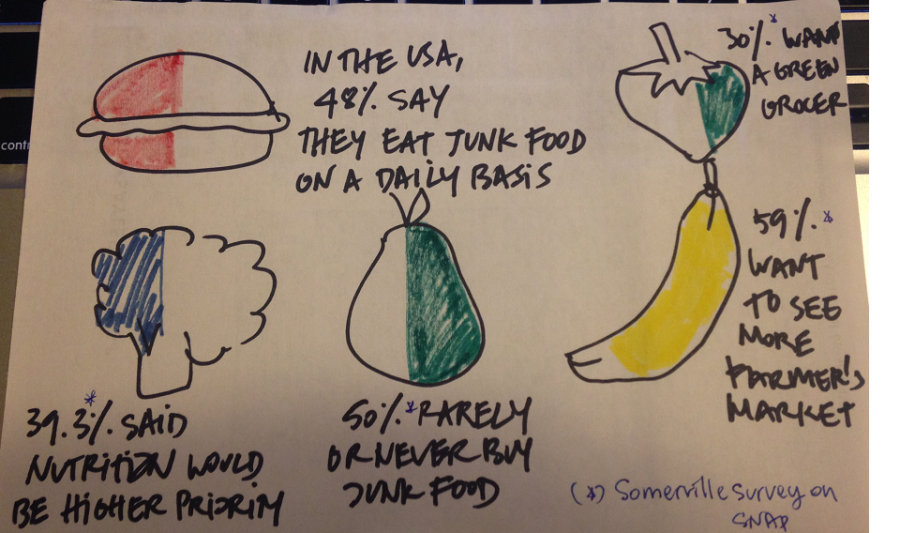 IN THE USA,
48% SAY
THEY EAT JUNK FOOD
ON A DAILY BASIS
30%* WANT
A GREEN
GROCER
59%*
WANT
TO SEE
MORE
FARMER'S
MARKET
39.3%* SAID
NUTRITION WOULD
BE HIGHER PRIORITY
50%* RARELY
OR NEVER BUY
JUNK FOOD
(*) Somerville survey on
SNAP
contr